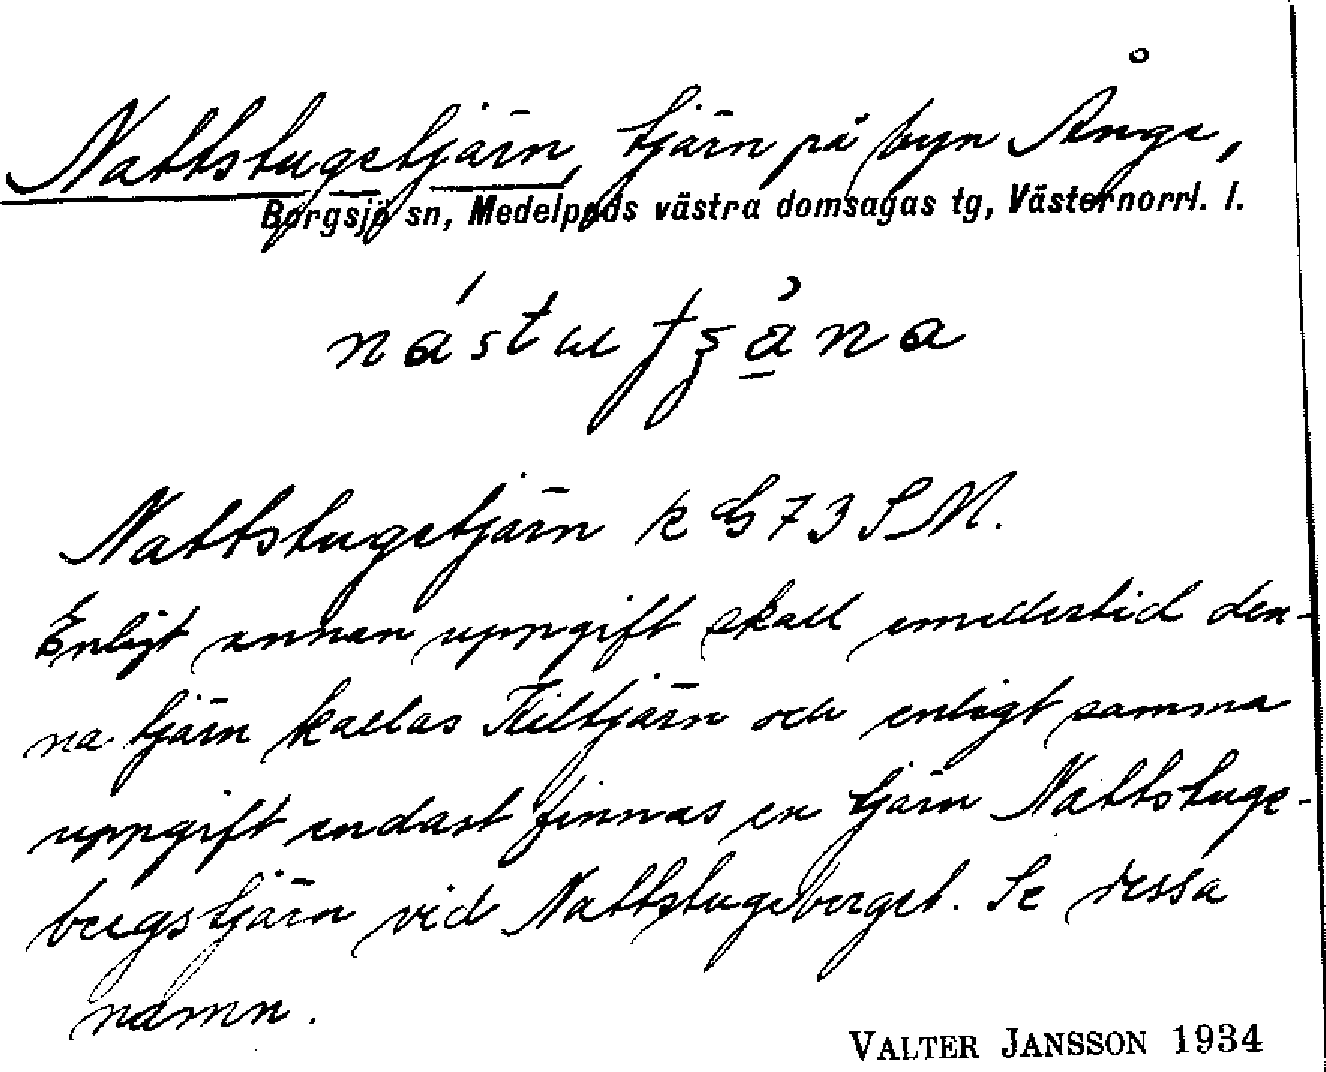 Nattstugetjärn, tjärn på byn Ånge,
Borgsjö sn, Medelpads västra domsagas tg, Västernorrl. l.
Nattstugetjärn k G 73 SM.
Enligt annan uppgift skall emellertid den-
na tjärn kallas Kiltjärn och enligt samma
uppgift endast finnas en tjärn Nattstuge-
bergstjärn vid Nattstugeberget. Se dessa
namn.
VALTER JANSSON 1934